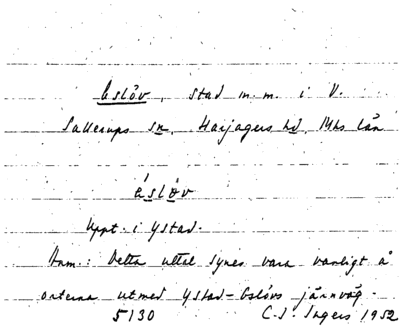 Eslöv, stad m.m. i V.
Sallerups sn, Harjagers hd, Mhs län
éslö̀v
Uppt. i Ystad.
Anm.: Detta uttal synes vara vanligt å
orterna utmed Ystad-Eslövs järnväg.
5130 C.I. Ingers 1952